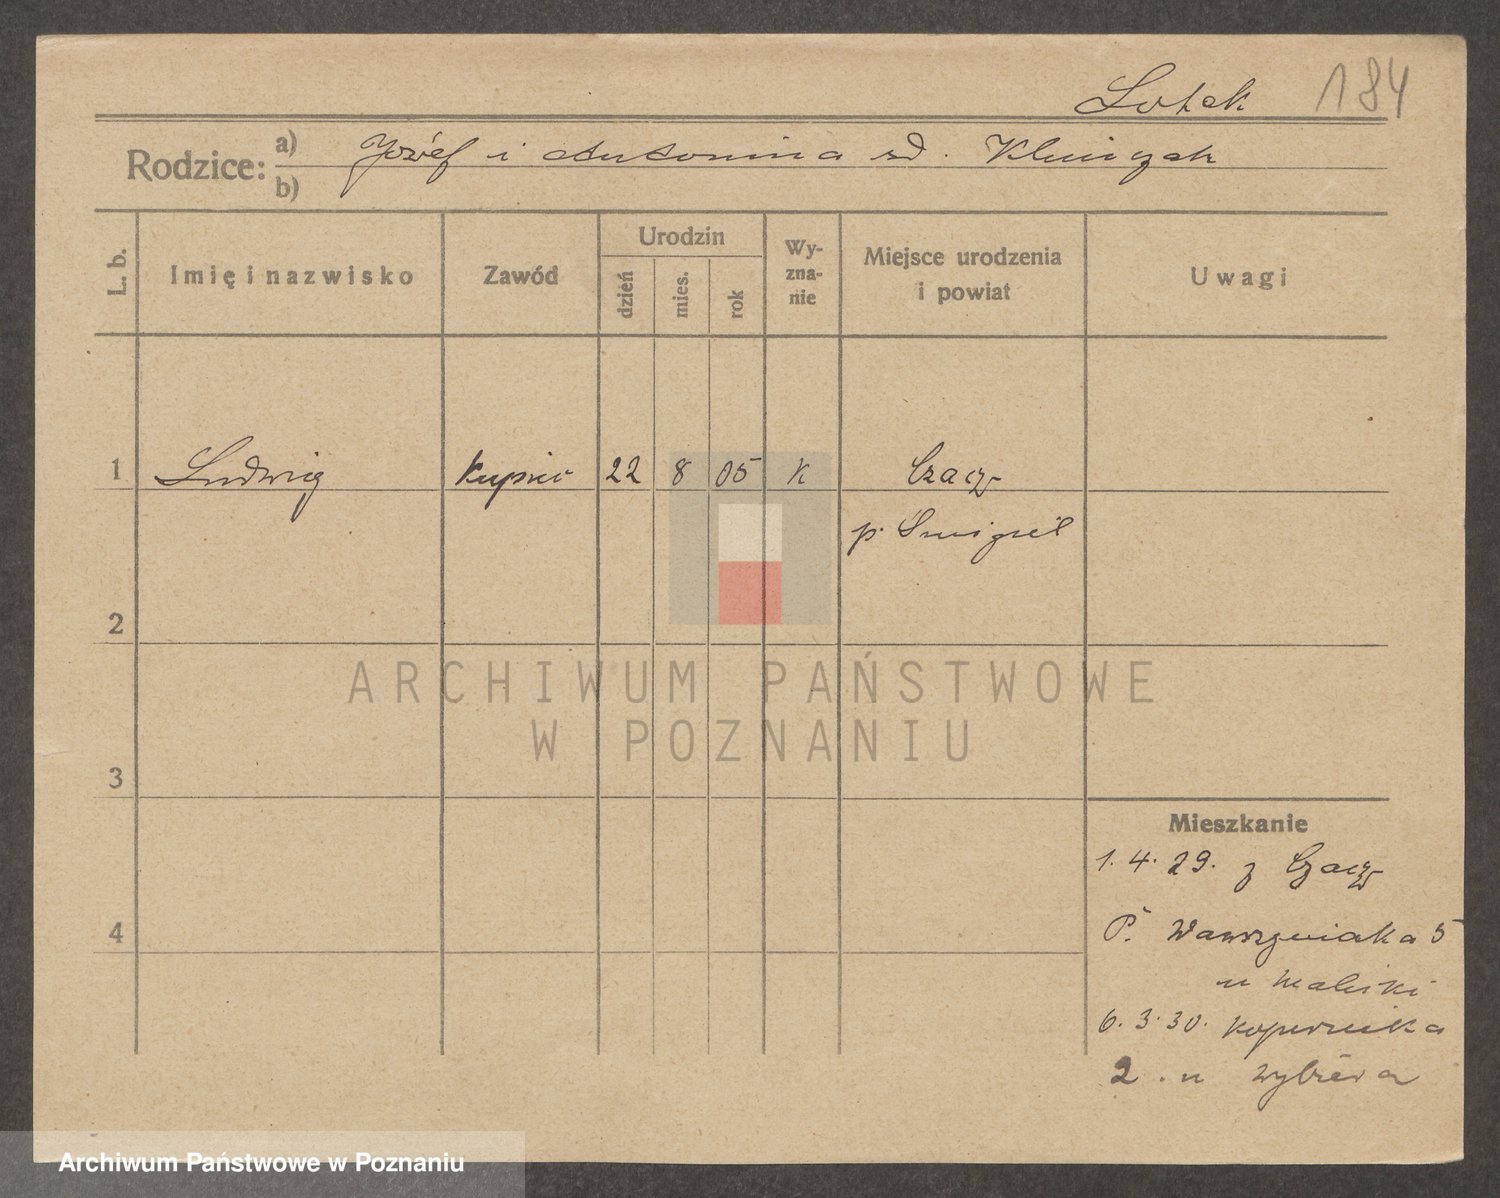 Lotek 184
Rodzice: a) Józef i Antonina rd. Klimczak
b)
L. b. Imię i nazwisko Zawód Urodzin dzień mies. rok Wyznanie Miejsce urodzenia i powiat Uwagi
1 Ludwig Kupiec 22 8 05 K Czacz
p. Śmigiel
2
ARCHIWUM PAŃSTWOWE
W POZNANIU
3
Mieszkanie
1. 4. 29. z Czacz
4
P. Wawrzyniaka 5
u Maliński
6. 3. 30. Kopernika
2. u
Archiwum Państwowe w Poznaniu